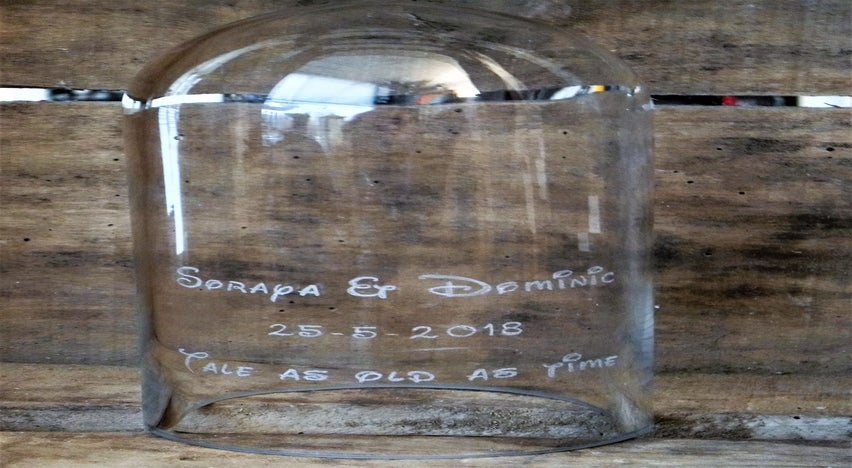 Soraya & Dominic
25-5-2018
Tale as old as time